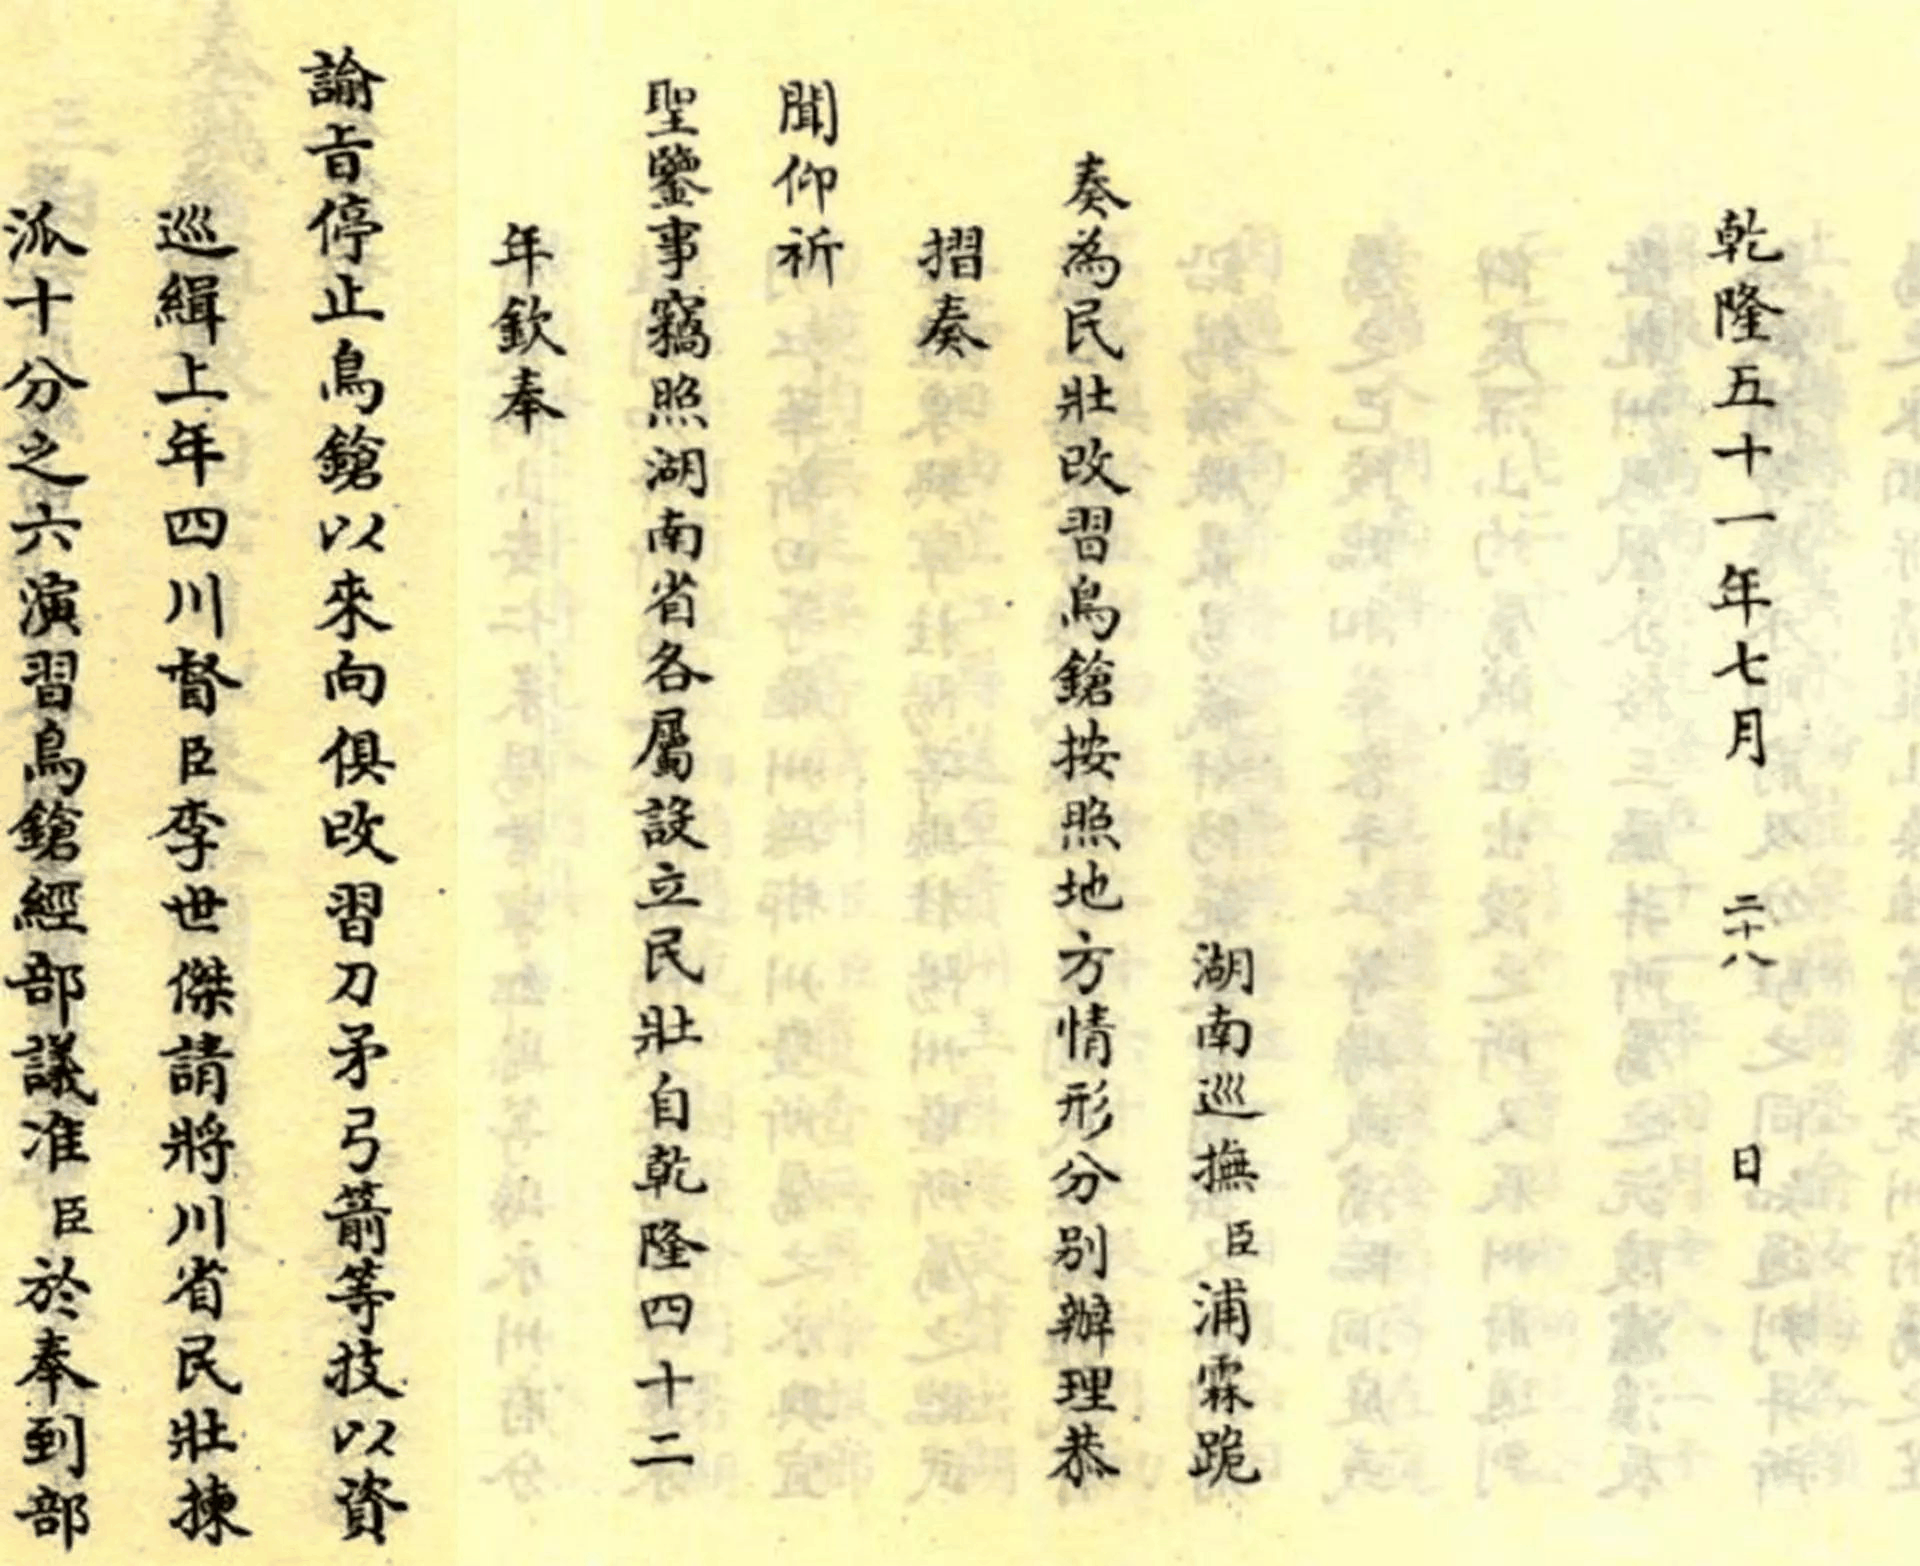 乾隆五十一年七月二十八日
湖南巡撫臣浦霖跪
奏為民壯改習鳥鎗按照地方情形分別辦理恭
摺奏
聞仰祈
聖鑒事竊照湖南省各屬設立民壯自乾隆四十二
年欽奉
諭旨停止鳥鎗以來向俱改習刀矛弓箭等技以資
巡緝上年四川督臣李世傑請將川省民壯揀
派十分之六演習鳥鎗經部議准臣於奉到部